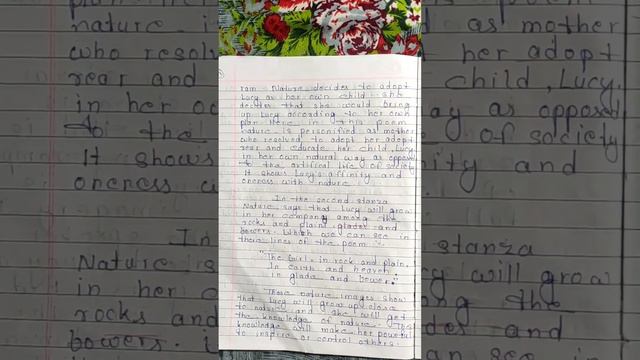 ram. Nature decides to adopt
Lucy as her own child. she
decides that she would bring
up Lucy according to her own
plan. Here in this poem
nature is personified as mother
who resolved to adopt her adopt
rear and educate her child, Lucy
in her own natural way as opposed
to the artificial life of society
It shows Lucy's affinity and
oneness with nature.
In the second stanza
Nature says that Lucy will grow
in her company among the
rocks and plains, glades and
bowers. Which we can see in
these lines of the poem :-
"The Girl, in rock and plain.
In earth and heaven
in glade and bower."
These nature images show
that Lucy will grow up close
to nature and she will get
the knowledge of nature. This
knowledge will make her powerful
to inspire or control others.